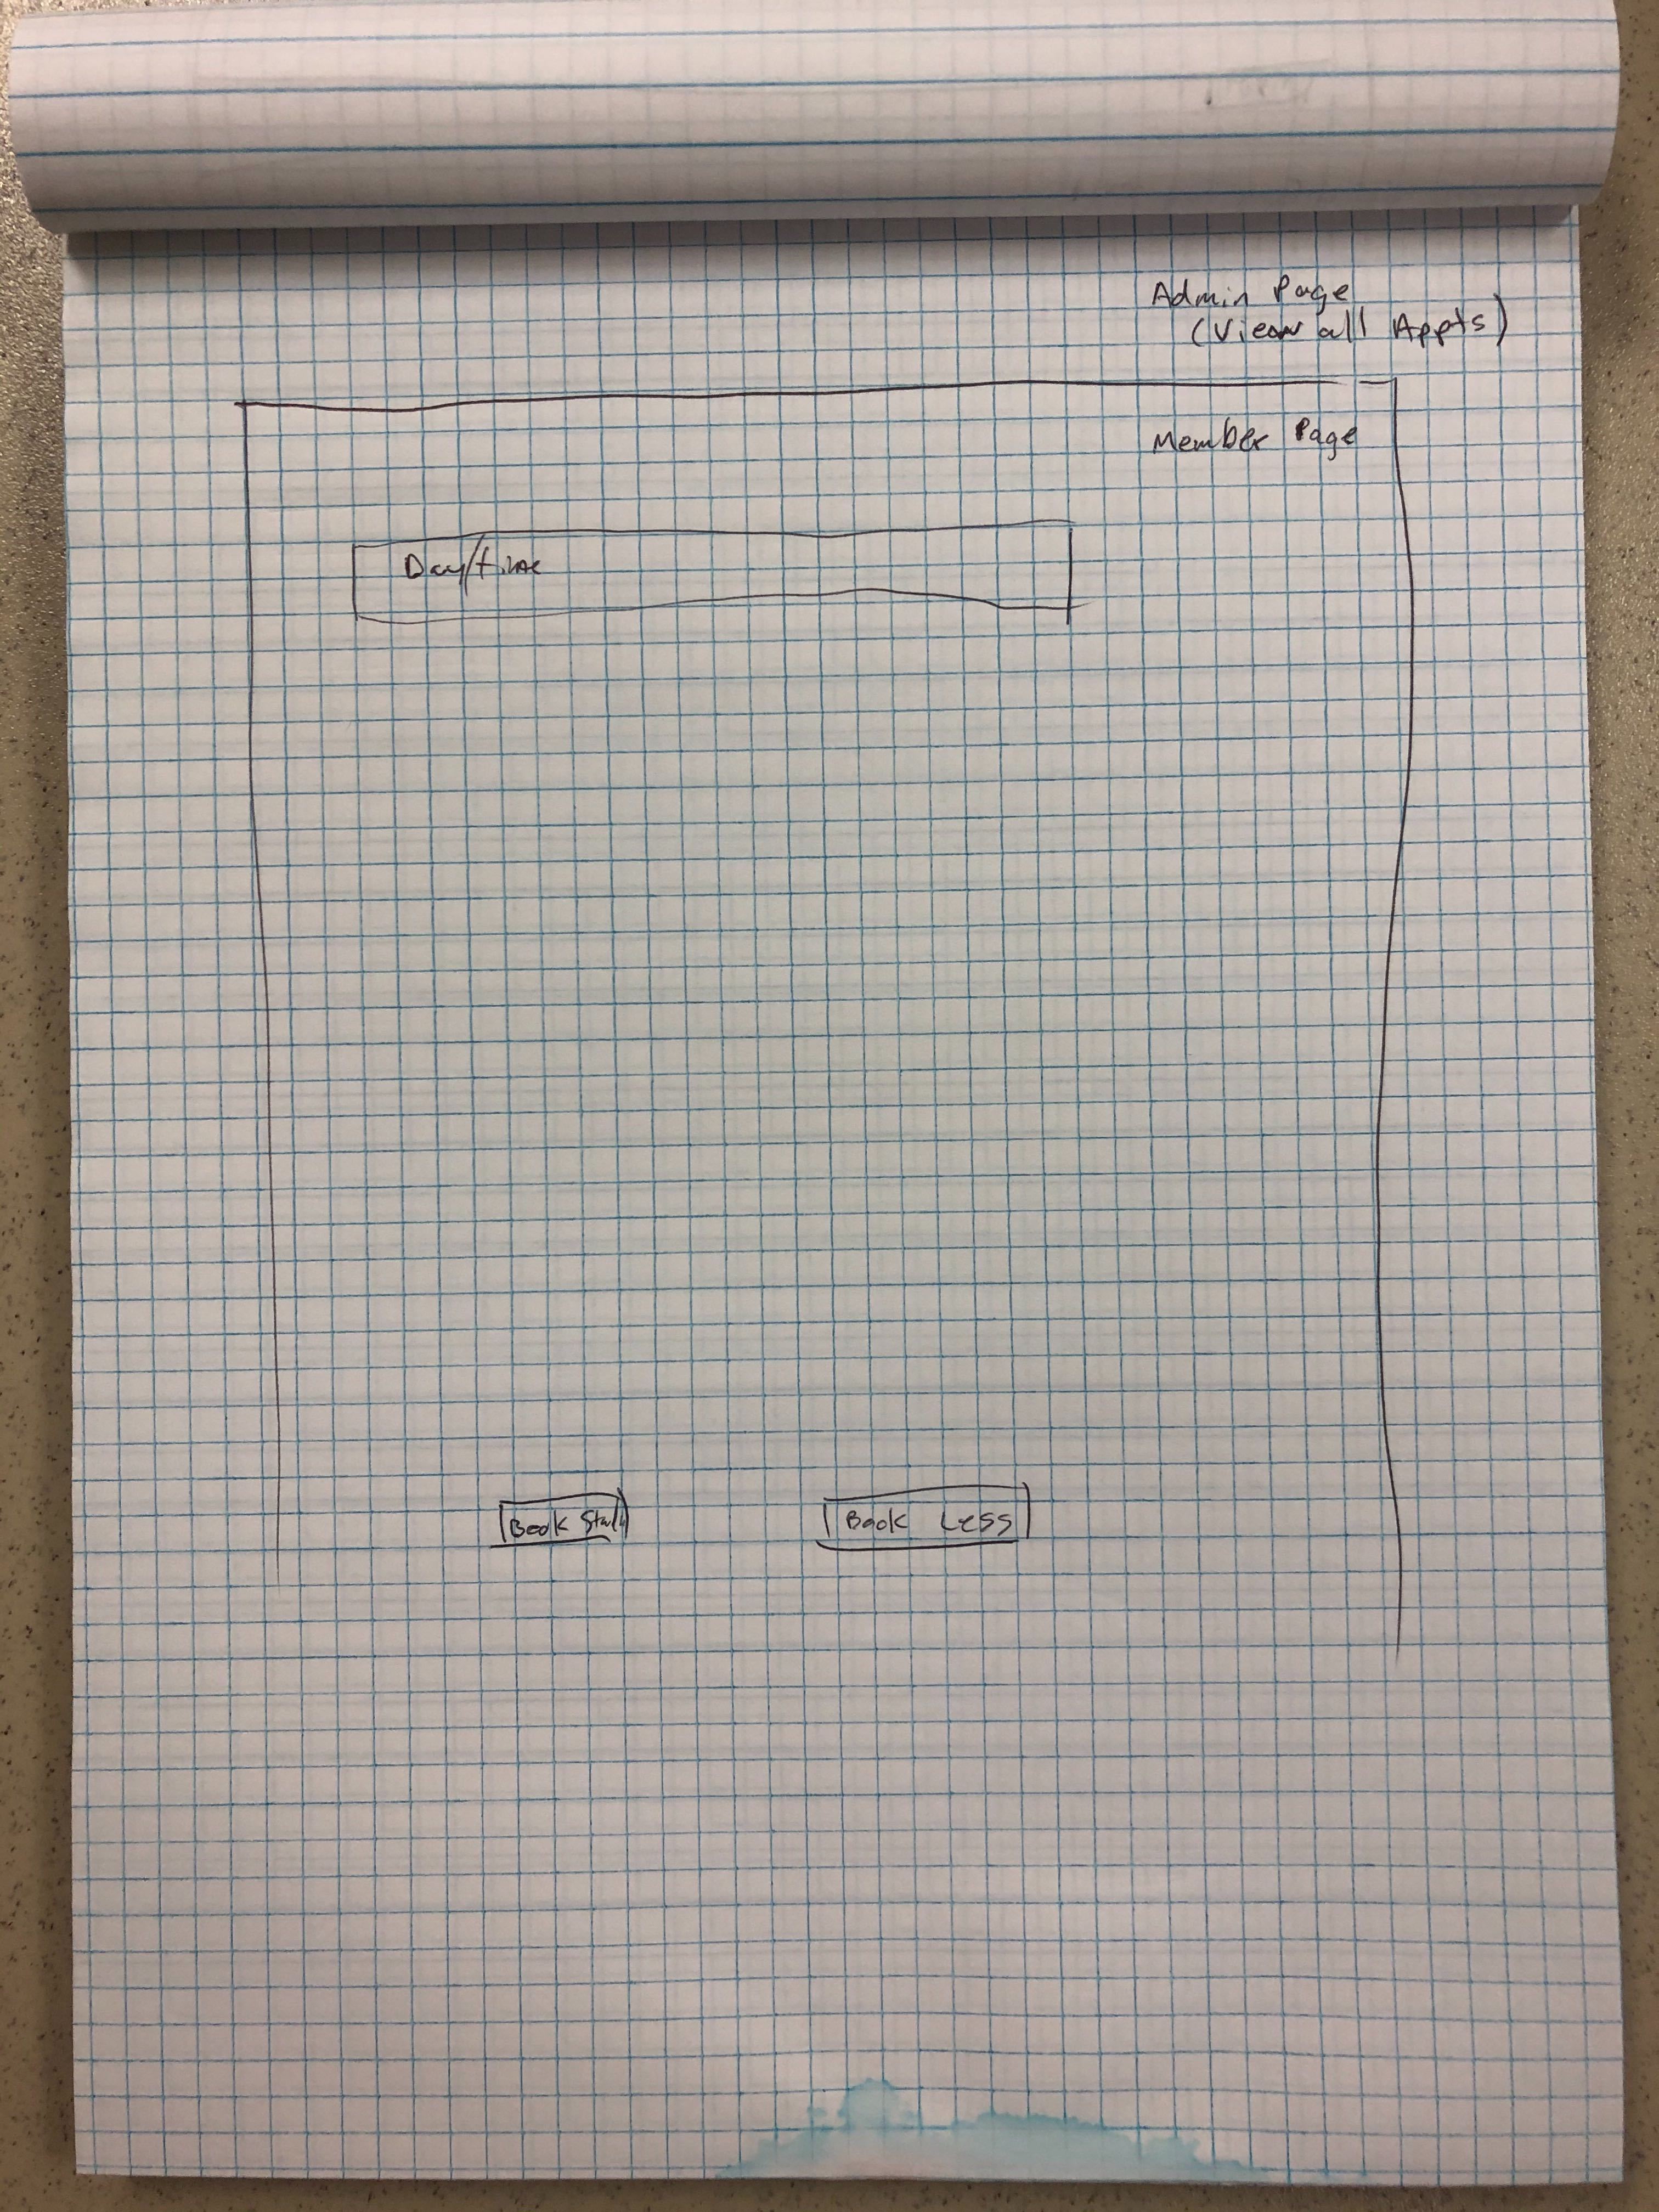 Admin Page
(View all Appts)
Member Page
Day/time
Book Stall
Book Less